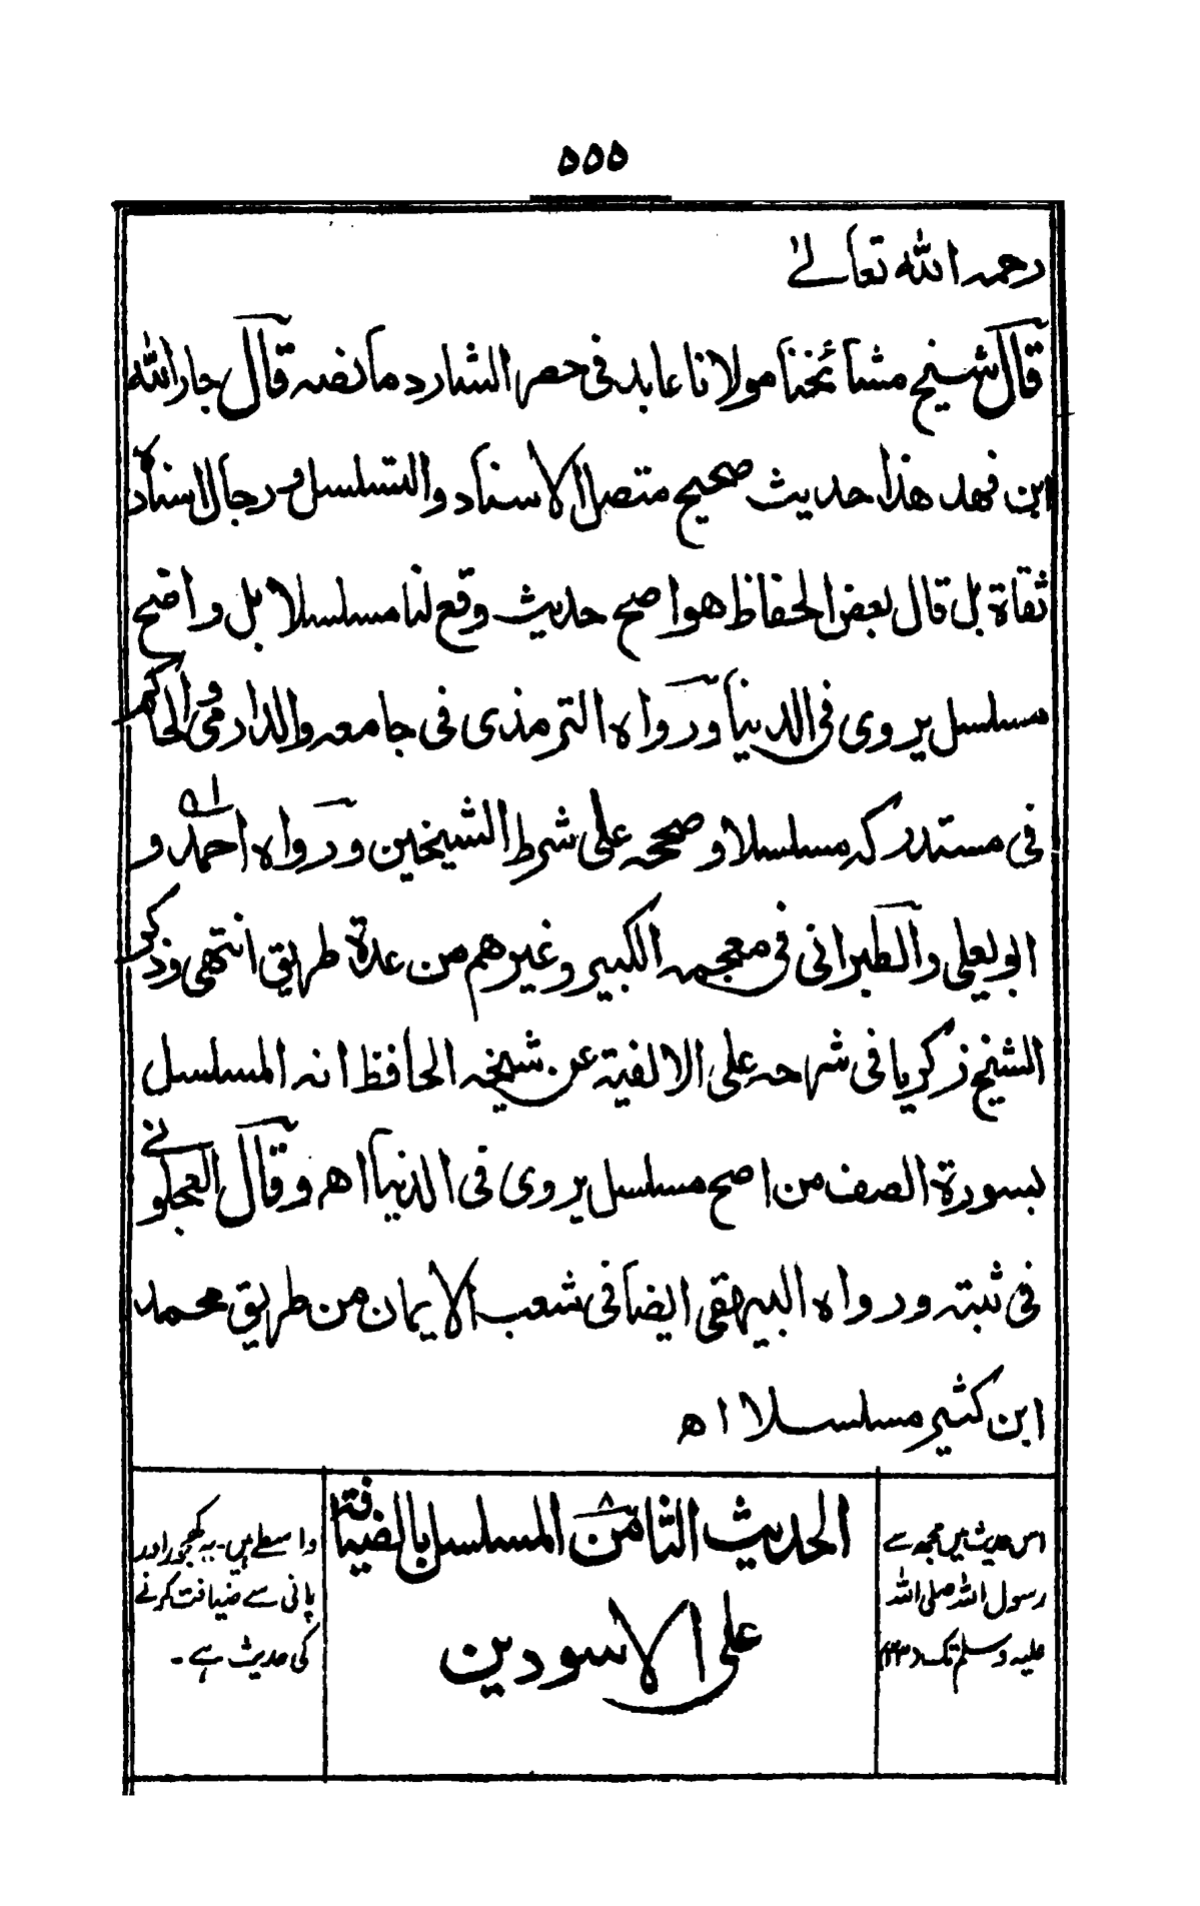 ۵۵۵
رحمہ اللہ تعالےٰ
قال شیخ مشائخنا مولانا عابد فی حصر الشارد ما نصہ قال جار اللہ
ابن فہد ھذا حدیث صحیح متصل الاسناد والتسلسل و رجال اسنادہ
ثقاة بل قال بعض الحفاظ ھو اصح حدیث وقع لنا مسلسلا بل و اضح
مسلسل یروی فی الدنیا ورواہ الترمذی فی جامعہ والدارمی و الحاکم
فی مستدرکہ مسلسلا و صححہ علی شرط الشیخین و رواہ احمد و
ابو یعلی والطبرانی فی معجمہ الکبیر و غیرھم من عدة طریق انتھی وذکر
الشیخ زکریا فی شرحہ علی الالفیة عن شیخہ الحافظ انہ المسلسل
بسورة الصف من اصح مسلسل یروی فی الدنیا اھ و قال العجلونی
فی ثبتہ ورواہ البیہقی ایضا فی شعب الایمان من طریق محمد
ابن کثیر مسلسلا اھ
الحدیث الثامن ۸ المسلسل بالضیافة
علی الاسودین
اس حدیث میں مجھ سے
رسول اللہ صلی اللہ
علیہ وسلم تک (۲۳)
واسطے ہیں۔ یہ کھجور اور
پانی سے ضیافت کرنے
کی حدیث ہے۔